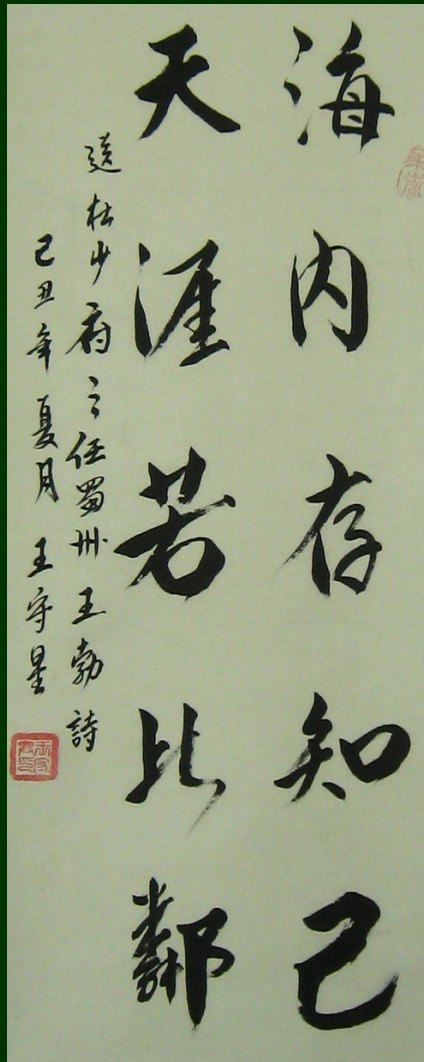 海内存知己
天涯若比鄰
送杜少府之任蜀州王勃詩
己丑年夏月王守星